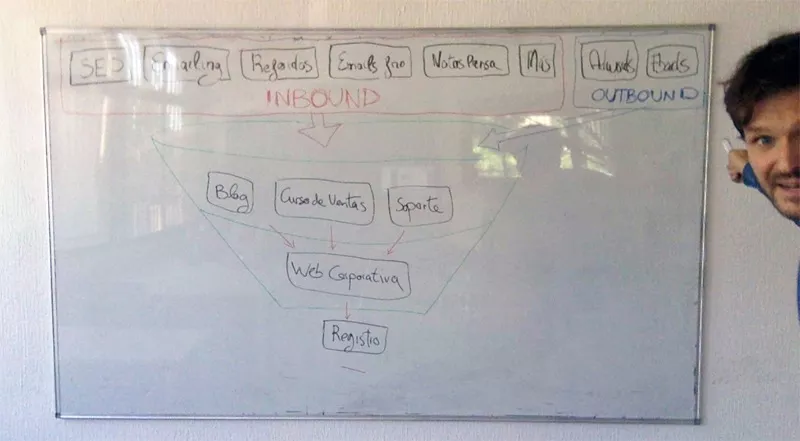 SEO
Emailing
Referidos
Emails frio
Notas Prensa
Más
Adwords
Fbads
INBOUND
OUTBOUND
Blog
Curso de Ventas
Soporte
Web Corporativa
Registro